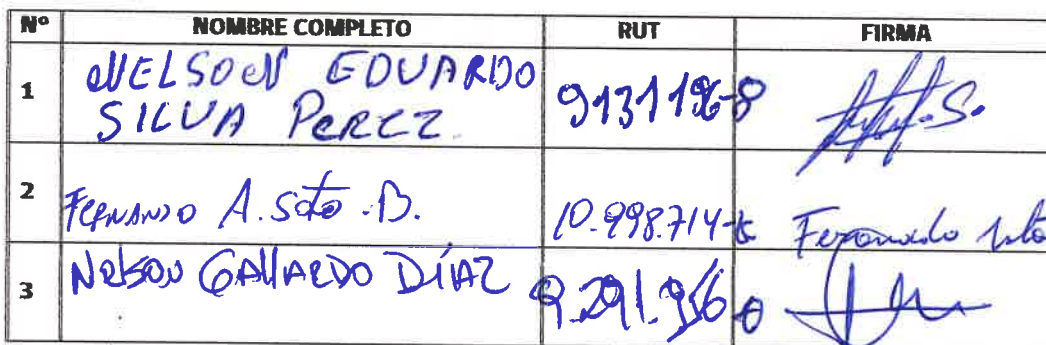 Nº NOMBRE COMPLETO RUT FIRMA
1 NELSON EDUARDO SILVA PEREZ 9131196-8
2 FERNANDO A. Soto .B. 10.998.714-k Fernando Soto
3 NELSON GALLARDO DÍAZ 9.291.956-0